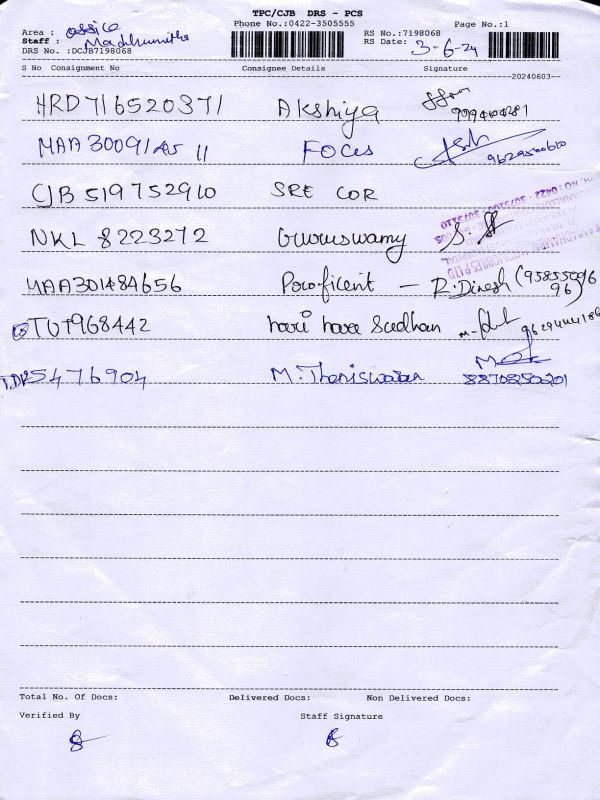 TPC/CJB DRS - PCS
Phone No.:0422-3505555 Page No.:1
Area : office
Staff : Madhumitha
DRS No. :DCJB7198068
RS No.:7198068
RS Date: 3-6-24
S No Consignment No Consignee Details Signature
20240603
HRD716520371 Akshiya
MAA30091 11 FOCes 9629500610
CJB 519752910 SRE COR
NKL 8223272 Guruswamy
MAA301484656 Poroficent - R.Dinesh (9585509696)
TUT968442 hari hara Sudhan
5476904 M. Thaniswaran 88708250201
Total No. Of Docs: Delivered Docs: Non Delivered Docs:
Verified By Staff Signature